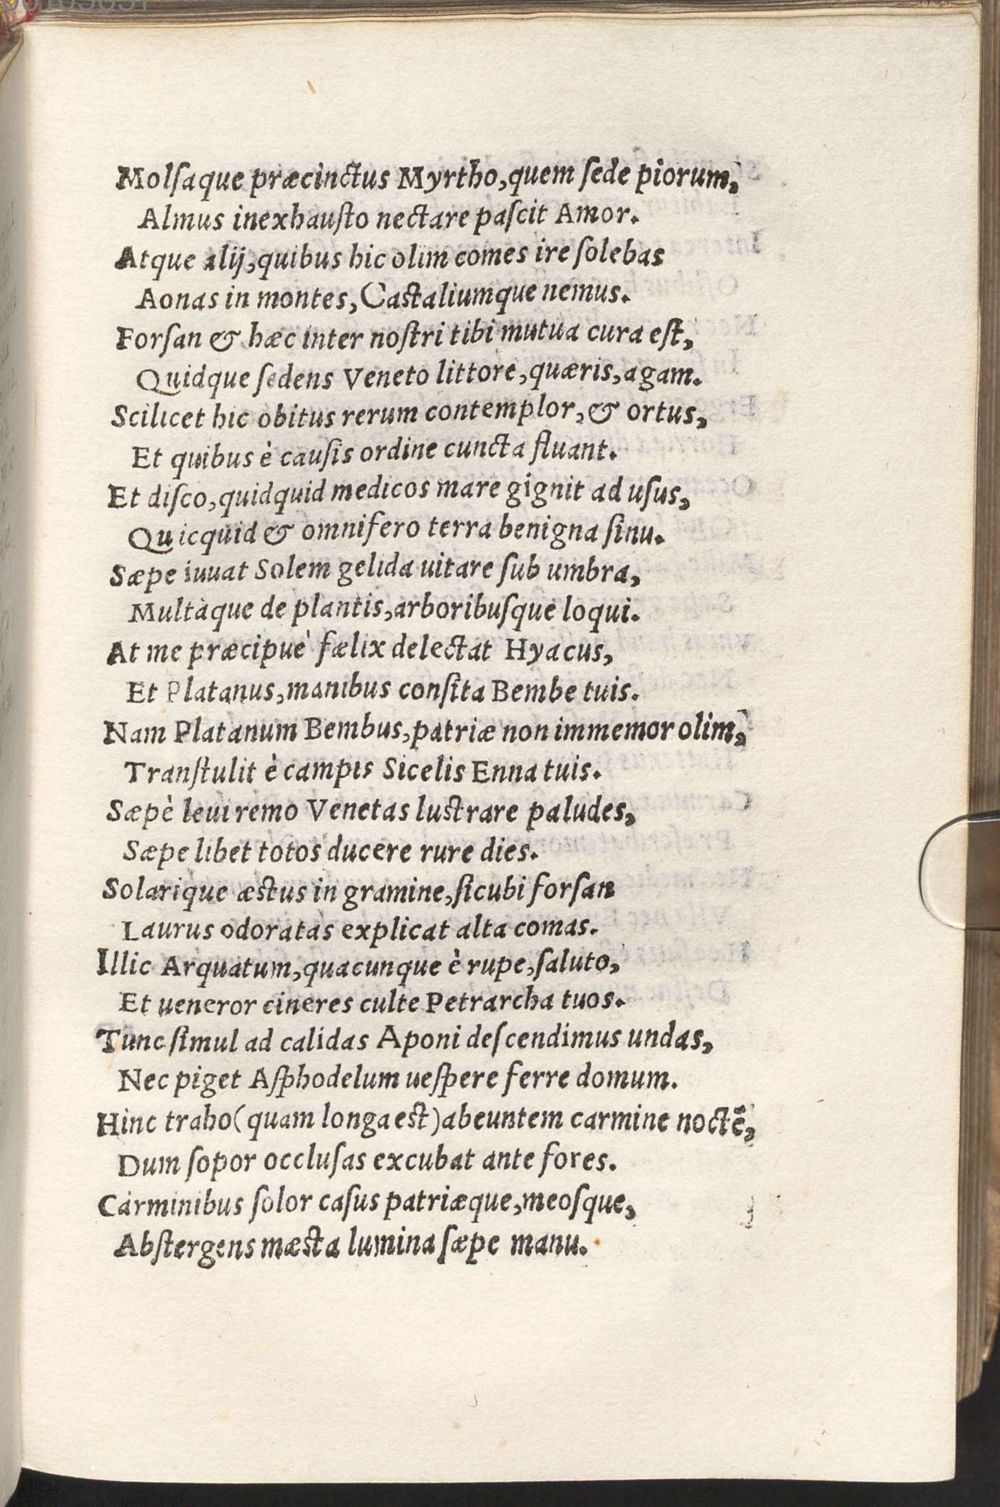 Molſaque præcinctus Myrtho, quem ſede piorum,
Almus inexhauſto nectare paſcit Amor.
Atque alij, quibus hic olim comes ire ſolebas
Aonas in montes, Caſtaliumque nemus.
Forſan & hæc inter noſtri tibi mutua cura eſt,
Quidque ſedens Veneto littore, quæris, agam.
Scilicet hic obitus rerum contemplor, & ortus,
Et quibus è cauſis ordine cuncta fluant.
Et diſco, quidquid medicos mare gignit ad uſus,
Quicquid & omnifero terra benigna ſinu.
Sæpe iuuat Solem gelida uitare ſub umbra,
Multàque de plantis, arboribuſque loqui.
At me præcipuè fælix delectat Hyacus,
Et Platanus, manibus conſita Bembe tuis.
Nam Platanum Bembus, patriæ non immemor olim,
Tranſtulit è campis Sicelis Enna tuis.
Sæpè leui remo Venetas luſtrare paludes,
Sæpe libet totos ducere rure dies.
Solarique æſtus in gramine, ſicubi forſan
Laurus odoratas explicat alta comas.
Illic Arquatum, quacunque è rupe, ſaluto,
Et ueneror cineres culte Petrarcha tuos.
Tunc ſimul ad calidas Aponi deſcendimus undas,
Nec piget Aſphodelum ueſpere ferre domum.
Hinc traho (quam longa eſt) abeuntem carmine noctẽ,
Dum ſopor occluſas excubat ante fores.
Carminibus ſolor caſus patriæque, meoſque,
Abſtergens mæſta lumina ſæpe manu.